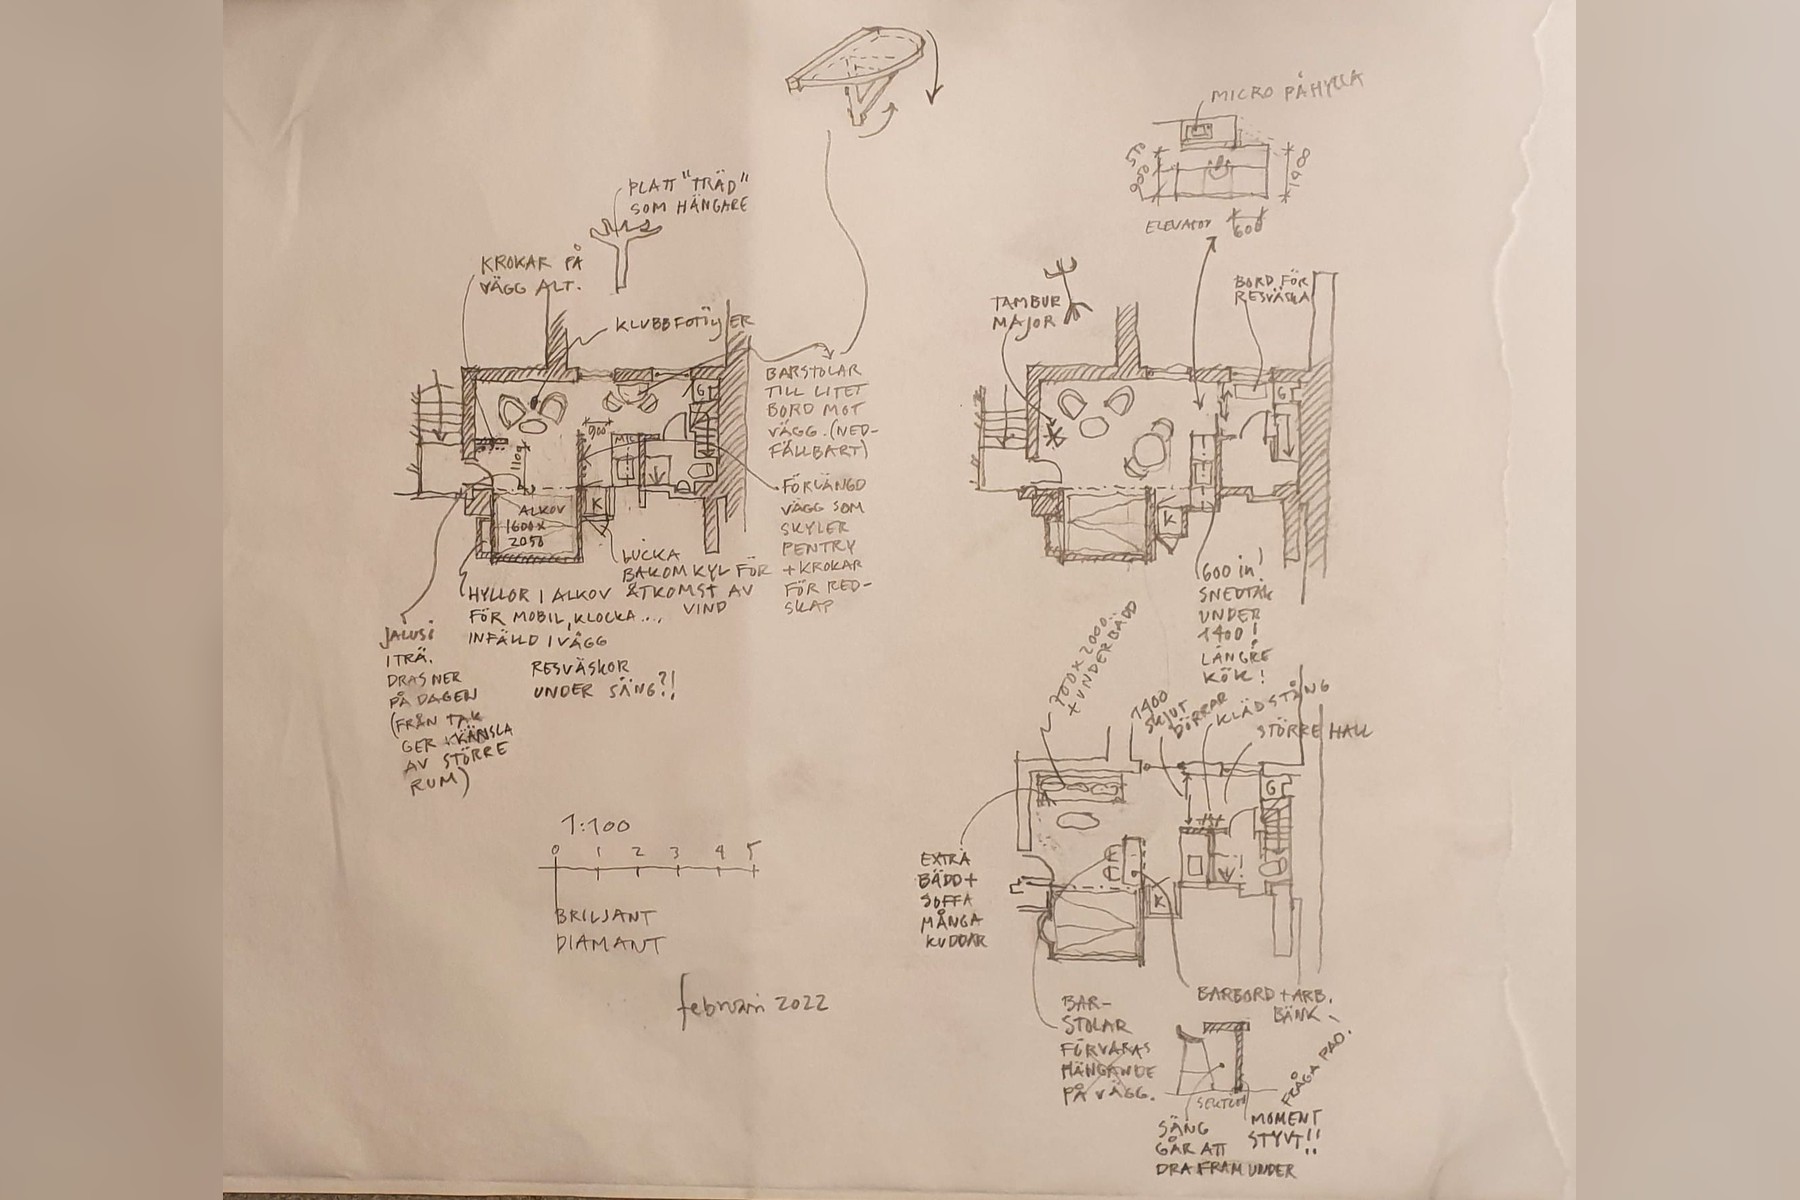 MICRO PÅ HYLLA
570
900
1198
ELEVATION
600
PLATT "TRÄD"
SOM HÄNGARE
KROKAR PÅ
VÄGG ALT.
KLUBBFOTÖLJER
BARSTOLAR
TILL LITET
BORD MOT
VÄGG. (NED-
FÄLLBART)
G
900
MIC
1100
K
ALKOV
1600 X
2050
FÖRLÄNGD
VÄGG SOM
SKYLER
PENTRY
+ KROKAR
FÖR RED-
SKAP
LUCKA
BAKOM KYL FÖR
ÅTKOMST AV
VIND
HYLLOR I ALKOV
FÖR MOBIL, KLOCKA...,
INFÄLLD I VÄGG
RESVÄSKOR
UNDER SÄNG?!
JALUSI
I TRÄ.
DRAS NER
PÅ DAGEN
(FRÅN TAK
GER KÄNSLA
AV STÖRRE
RUM)
1:100
0 1 2 3 4 5
BRILJANT
DIAMANT
februari 2022
TAMBUR
MAJOR
BORD FÖR
RESVÄSKA
G
K
600 in!
SNEDTAK
UNDER
1400!
LÄNGRE
KÖK!
700 X 2000
+ UNDERBÄDD
1400
SKJUT
DÖRRAR
KLÄDSTÅNG
STÖRRE HALL
G
K
EXTRA
BÄDD +
SOFFA
MÅNGA
KUDDAR
BAR-
STOLAR
FÖRVARAS
HÄNGANDE
PÅ VÄGG.
BARBORD + ARB.
BÄNK
FRÅGA PAO.
SEKTION
MOMENT
STYVT!!
SÄNG
GÅR ATT
DRA FRAM UNDER